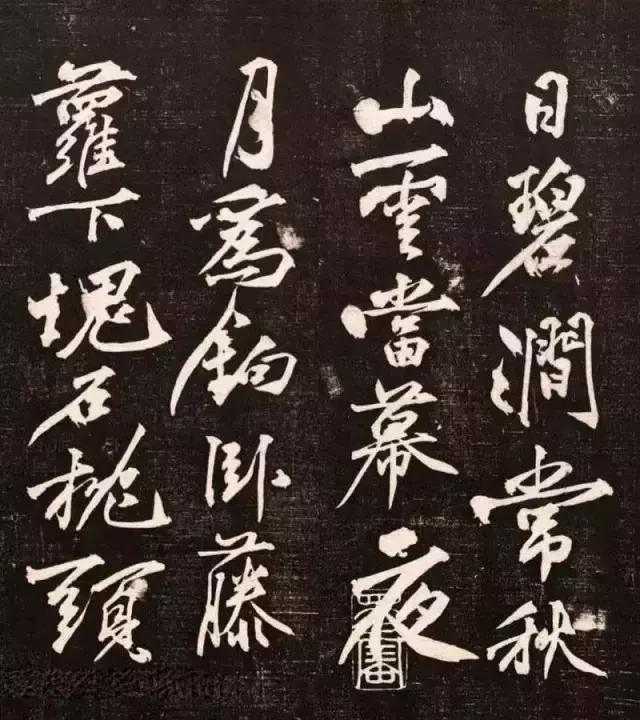 日碧澗常秋
山雲當幕夜
月爲鈎卧藤
蘿下塊石枕頭